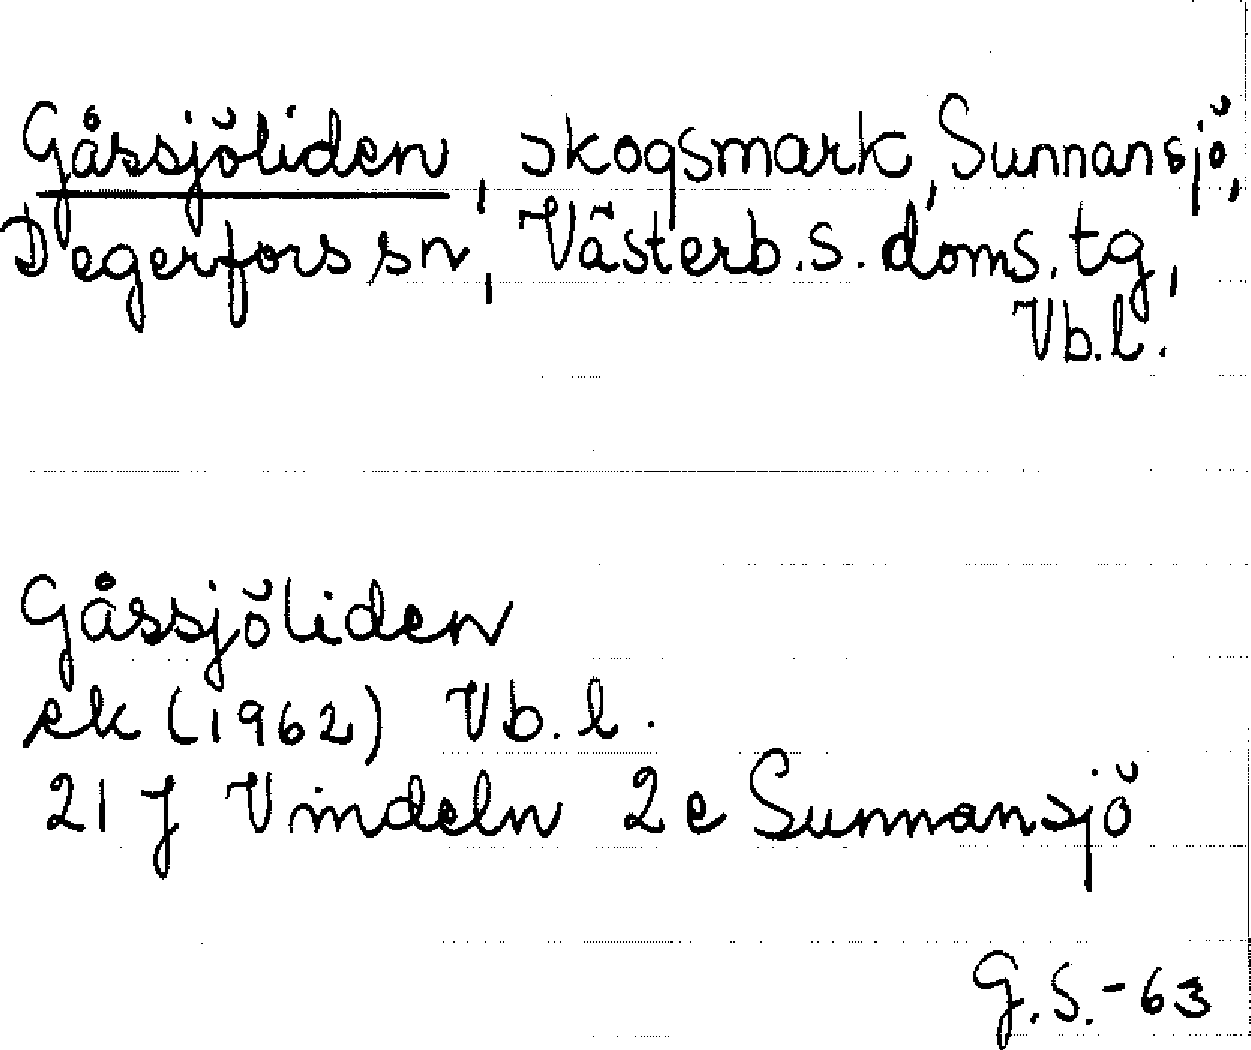 Gåssjöliden, skogsmark, Sunnansjö,
Degerfors sn, Västerb. s. doms. tg,
Vb. l.
Gåssjöliden
ek (1962) Vb. l.
21 J Vindeln 2 e Sunnansjö
G. S. - 63